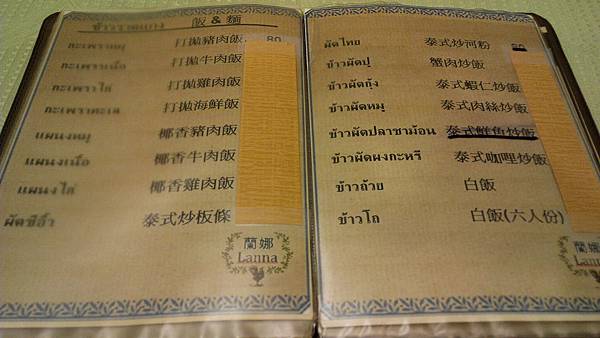 ข้าวราดแกง 飯 & 麵
กะเพราหมู 打拋豬肉飯 80
กะเพราเนื้อ 打拋牛肉飯
กะเพราไก่ 打拋雞肉飯
กะเพราทะเล 打拋海鮮飯
แพนงหมู 椰香豬肉飯
แพนงเนื้อ 椰香牛肉飯
แพนงไก่ 椰香雞肉飯
ผัดซีอิ้ว 泰式炒板條
蘭娜
Lanna
ผัดไทย 泰式炒河粉
ข้าวผัดปู 蟹肉炒飯
ข้าวผัดกุ้ง 泰式蝦仁炒飯
ข้าวผัดหมู 泰式肉絲炒飯
ข้าวผัดปลาชาม้อน 泰式鮮魚炒飯
ข้าวผัดผงกะหรี่ 泰式咖哩炒飯
ข้าวถ้วย 白飯
ข้าวโถ 白飯(六人份)
蘭娜
Lanna